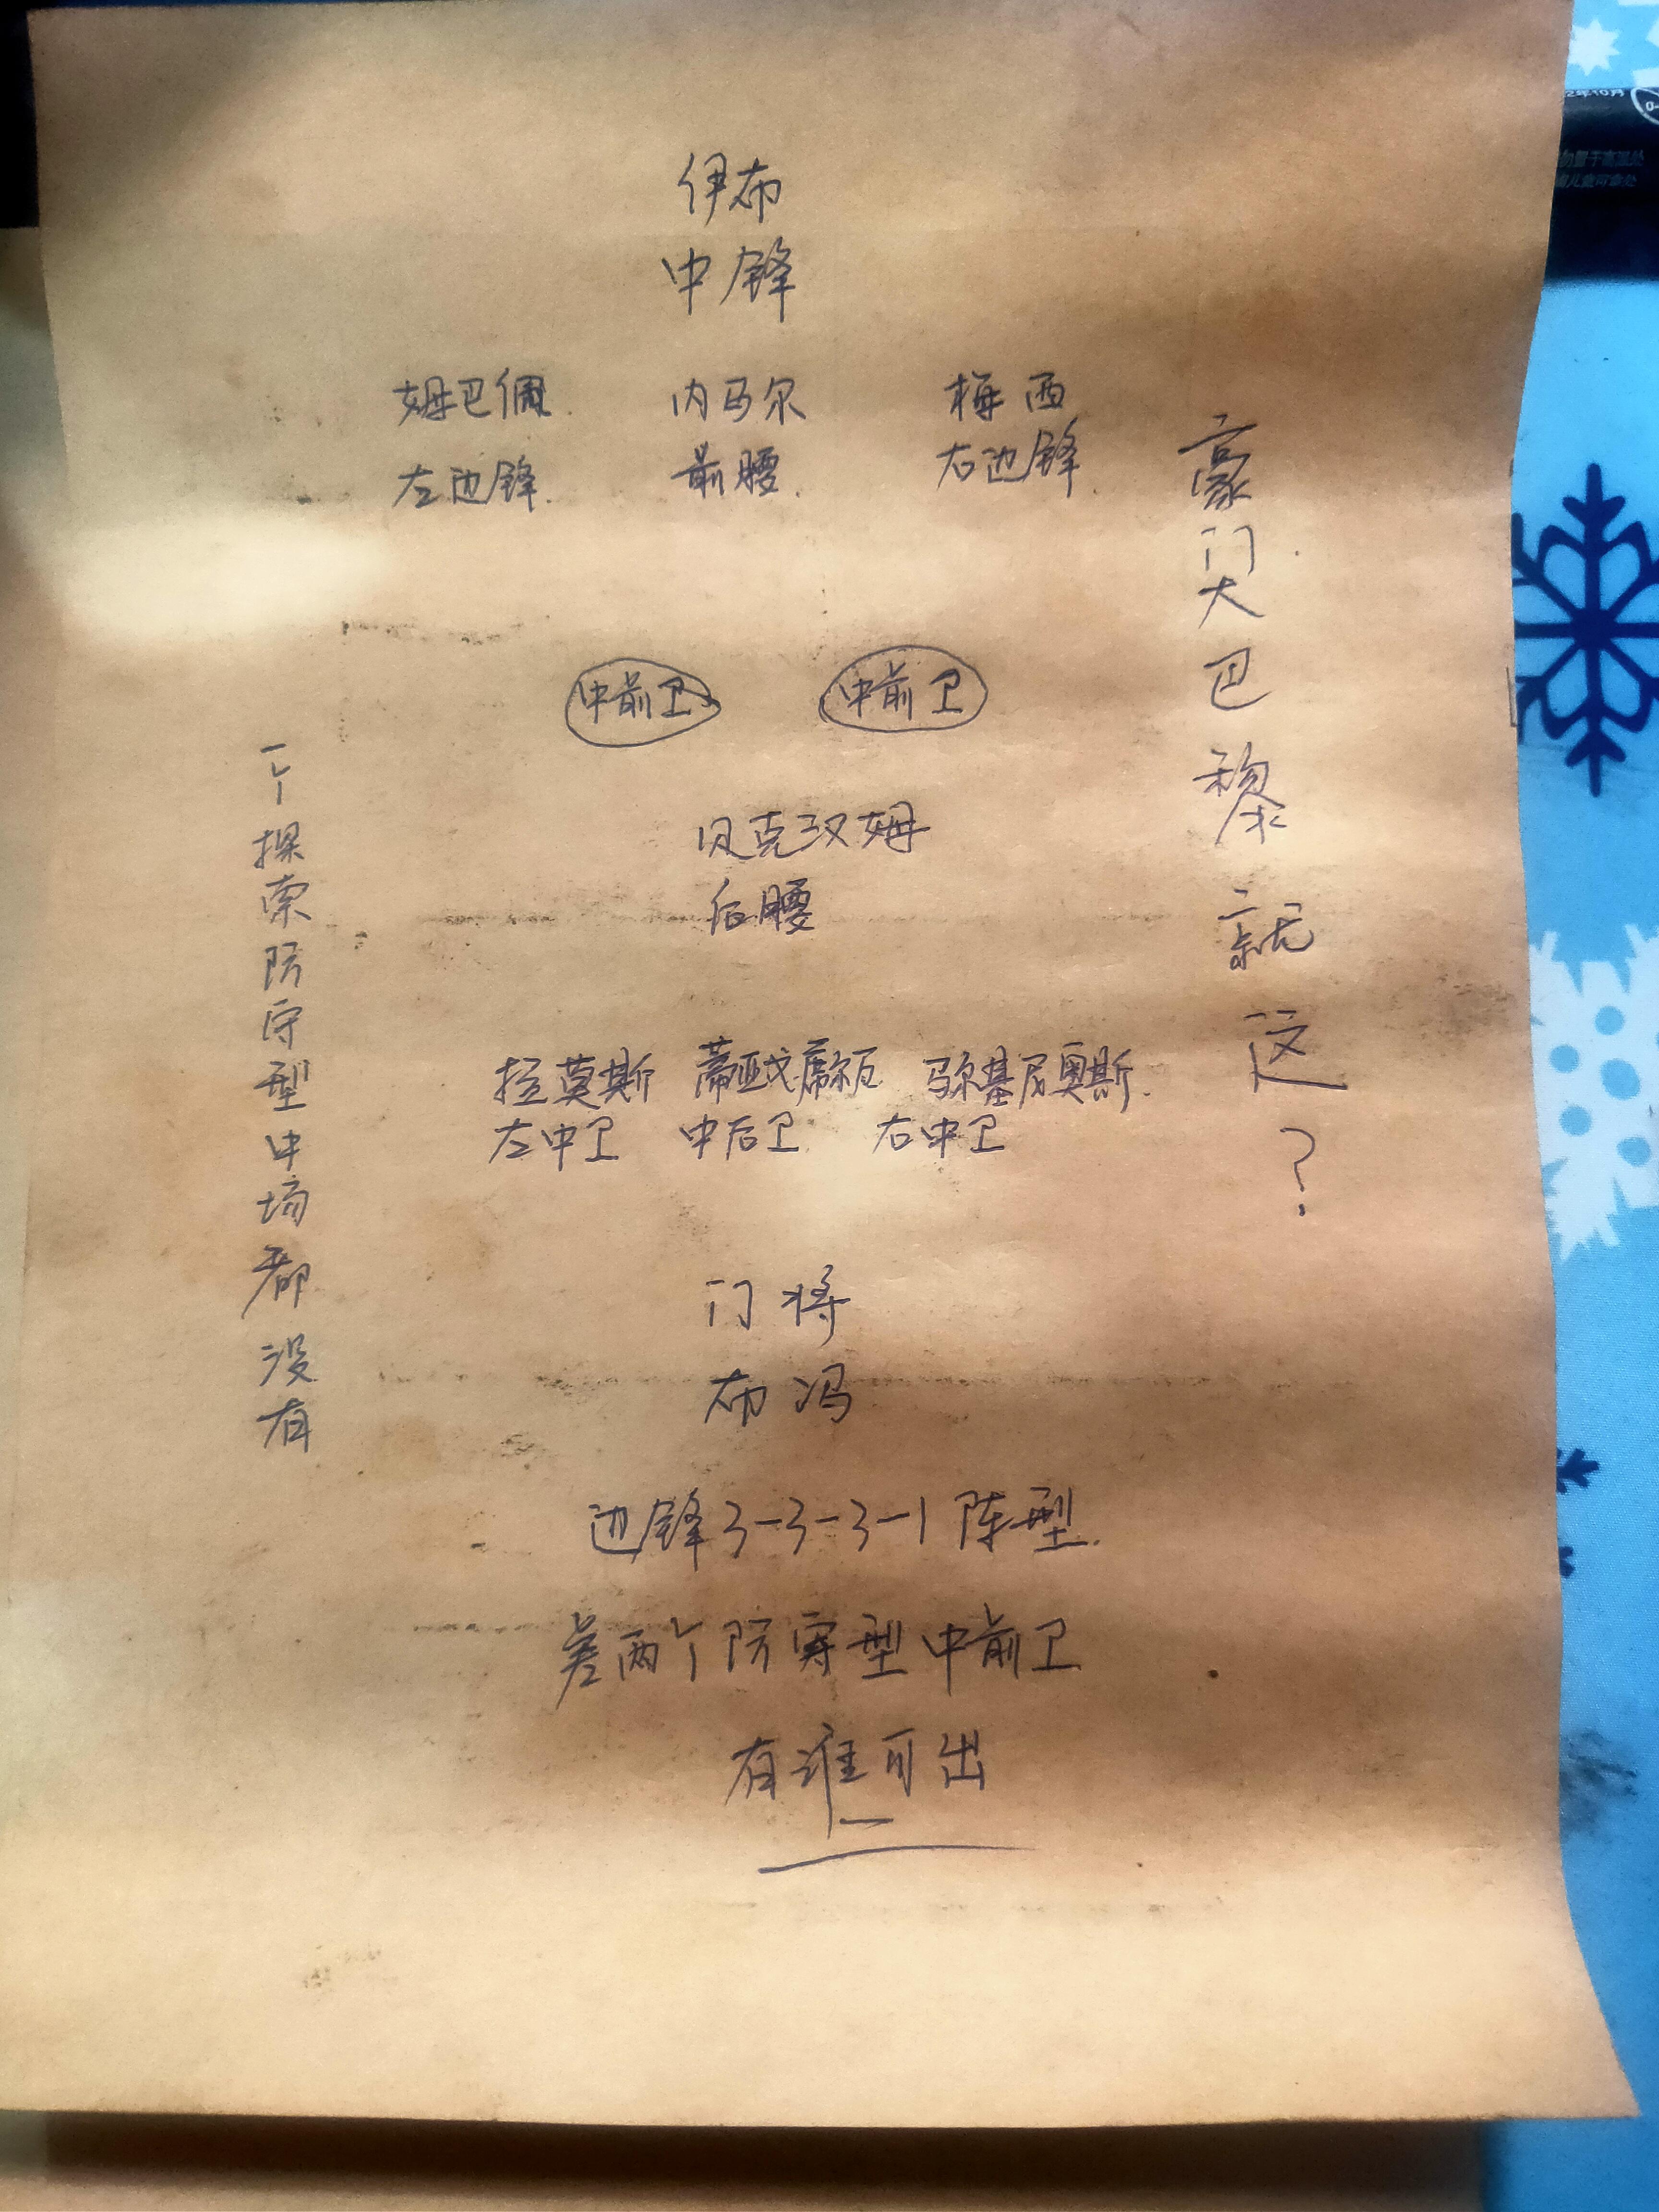 伊布
中锋
姆巴佩 内马尔 梅西
左边锋 前腰 右边锋
豪门大巴黎就这?
中前卫 中前卫
一个探索防守型中场都没有
贝克汉姆
后腰
拉莫斯 蒂亚戈席尔瓦 马尔基尼奥斯
左中卫 中后卫 右中卫
门将
布冯
边锋3-3-3-1阵型
差两个防守型中前卫
有谁可出
2年10月
勿置于高温处